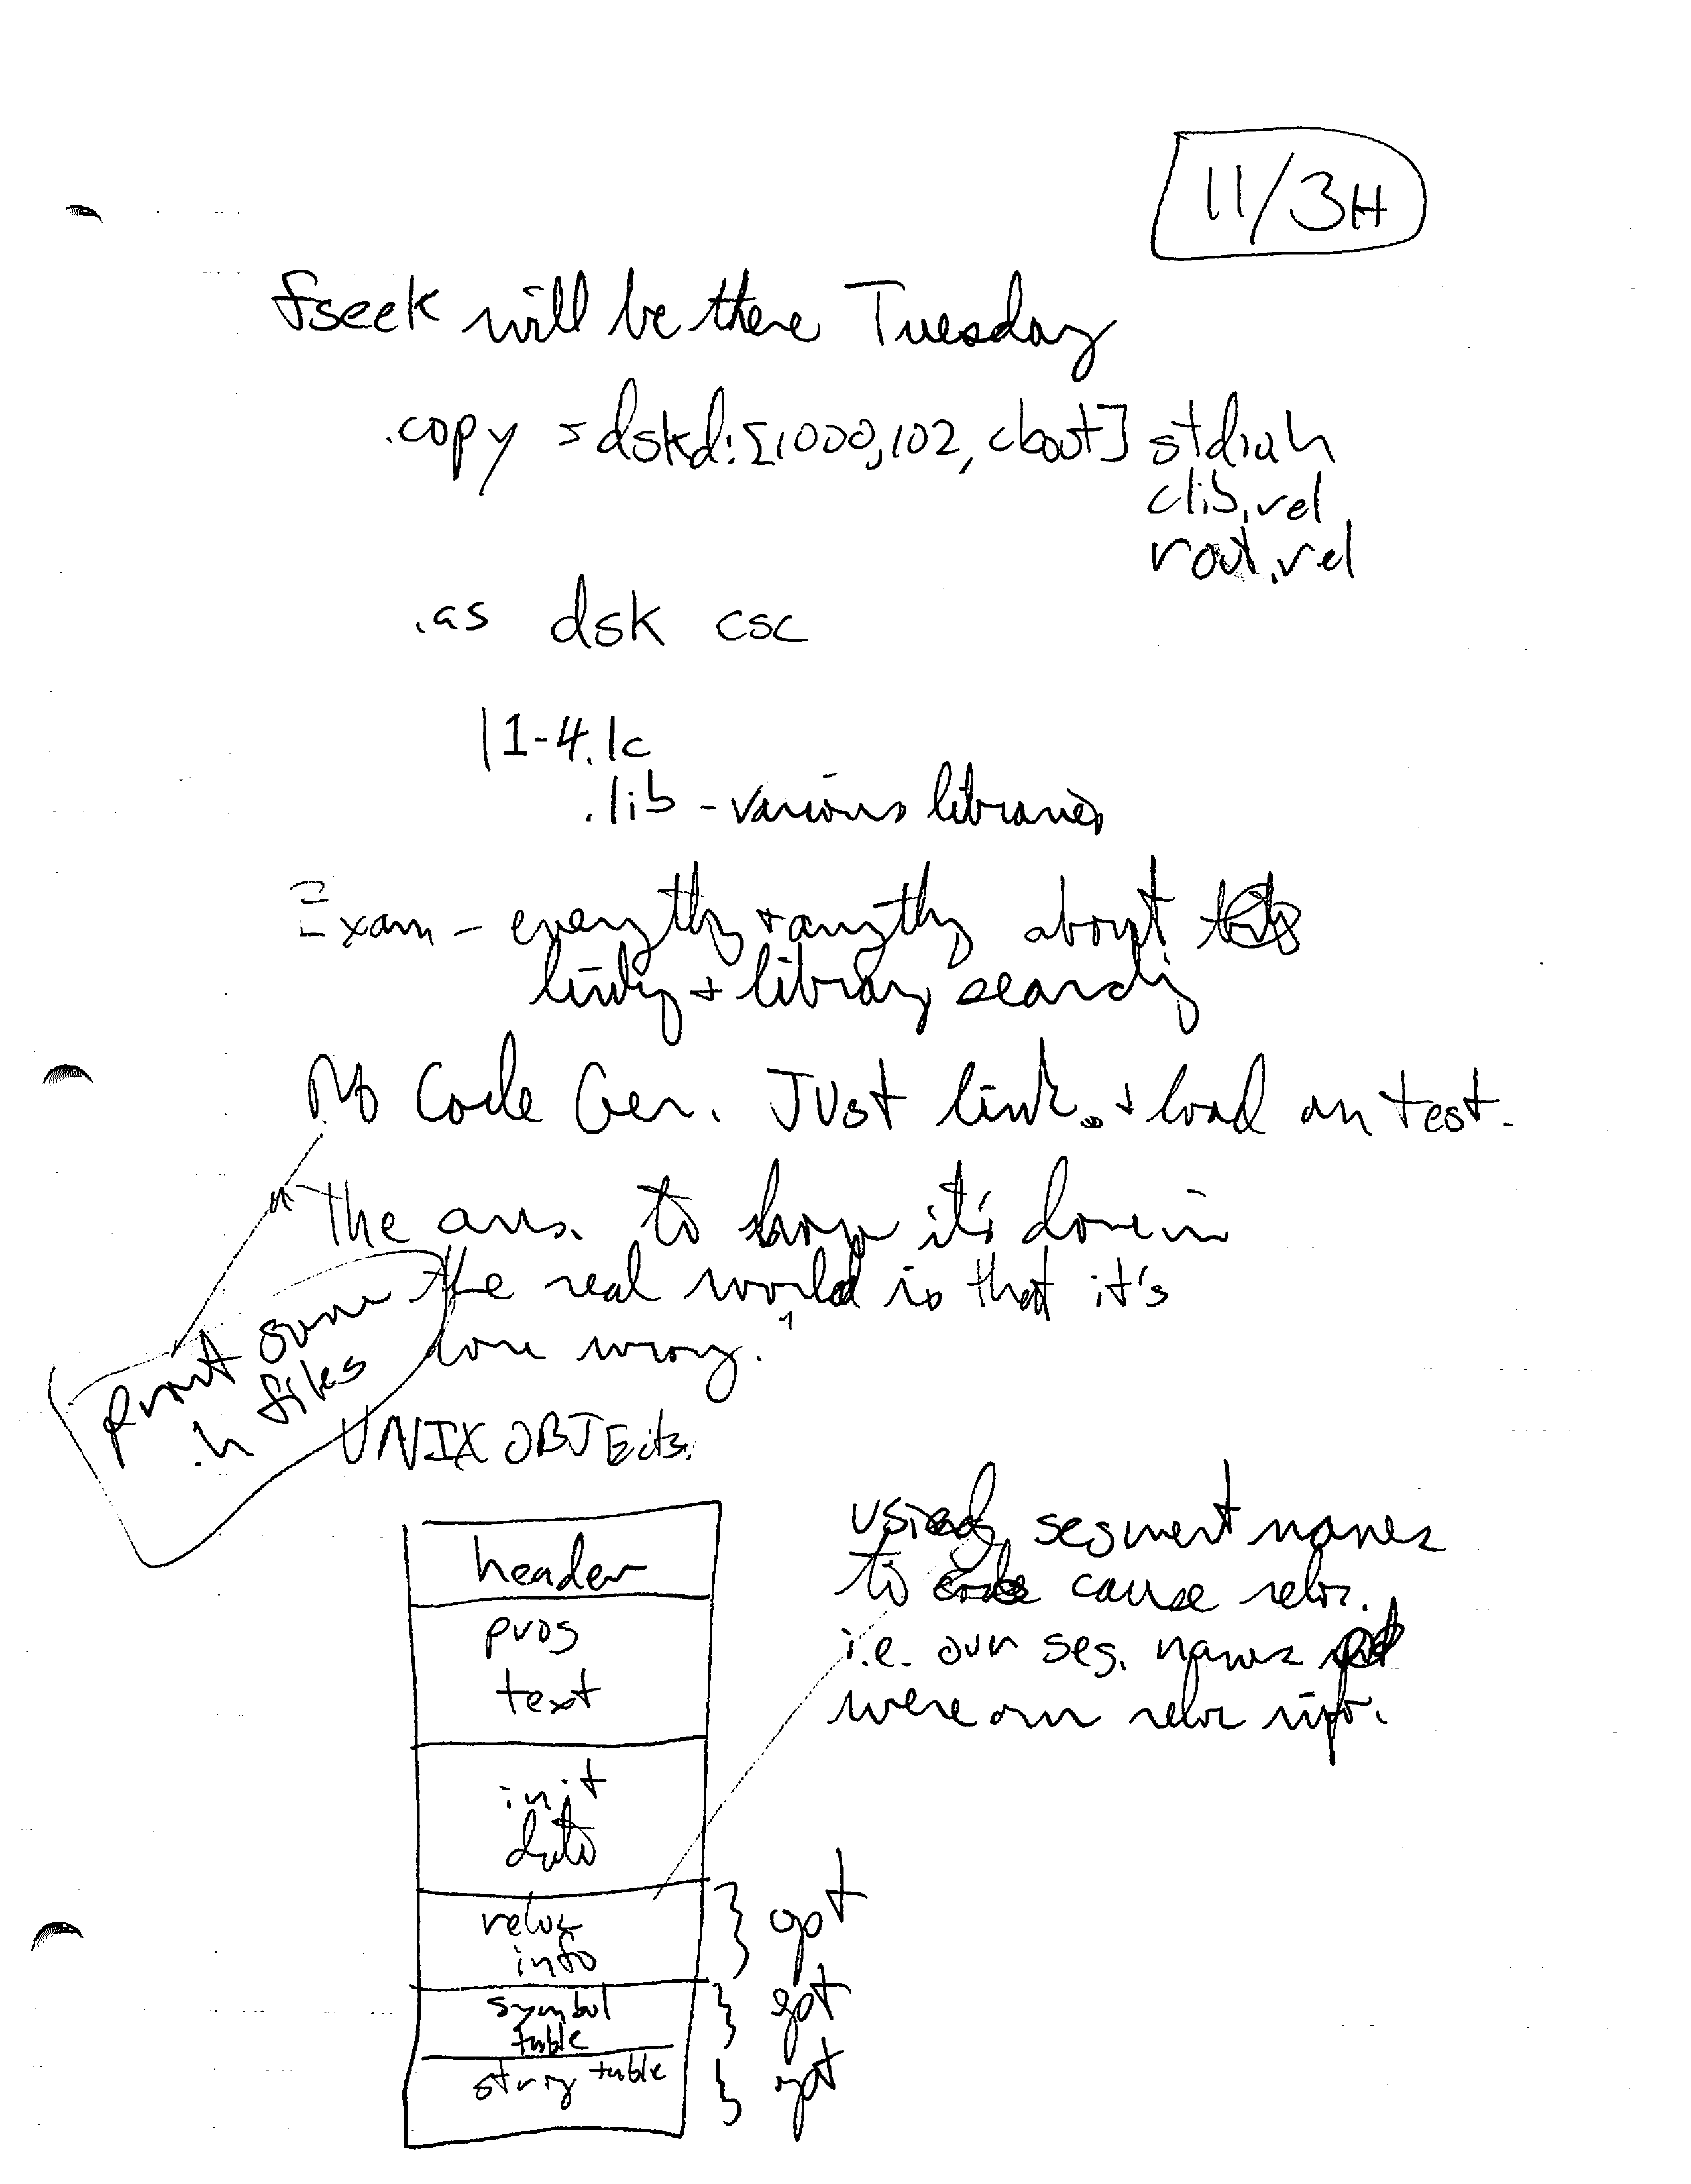 11/3H
fseek will be there Tuesday
.copy = dskd:[1000,102,cbout] stdio.h
clib.rel
rout.rel
.as dsk csc
11-4.lc
.lib - various libraries
Exam - everythg + anythg about
linkg + library searchg
No Code Gen. Just link. + load on test.
"The ans. to how it's done in
the real world is that it's
done wrong."
print some
.h files
UNIX OBJEcts.
header
prog
text
init
data
reloc
info
opt
symbol
table
opt
string table
opt
using segment names
to cause reloc.
i.e. our seg. names
were our reloc info.